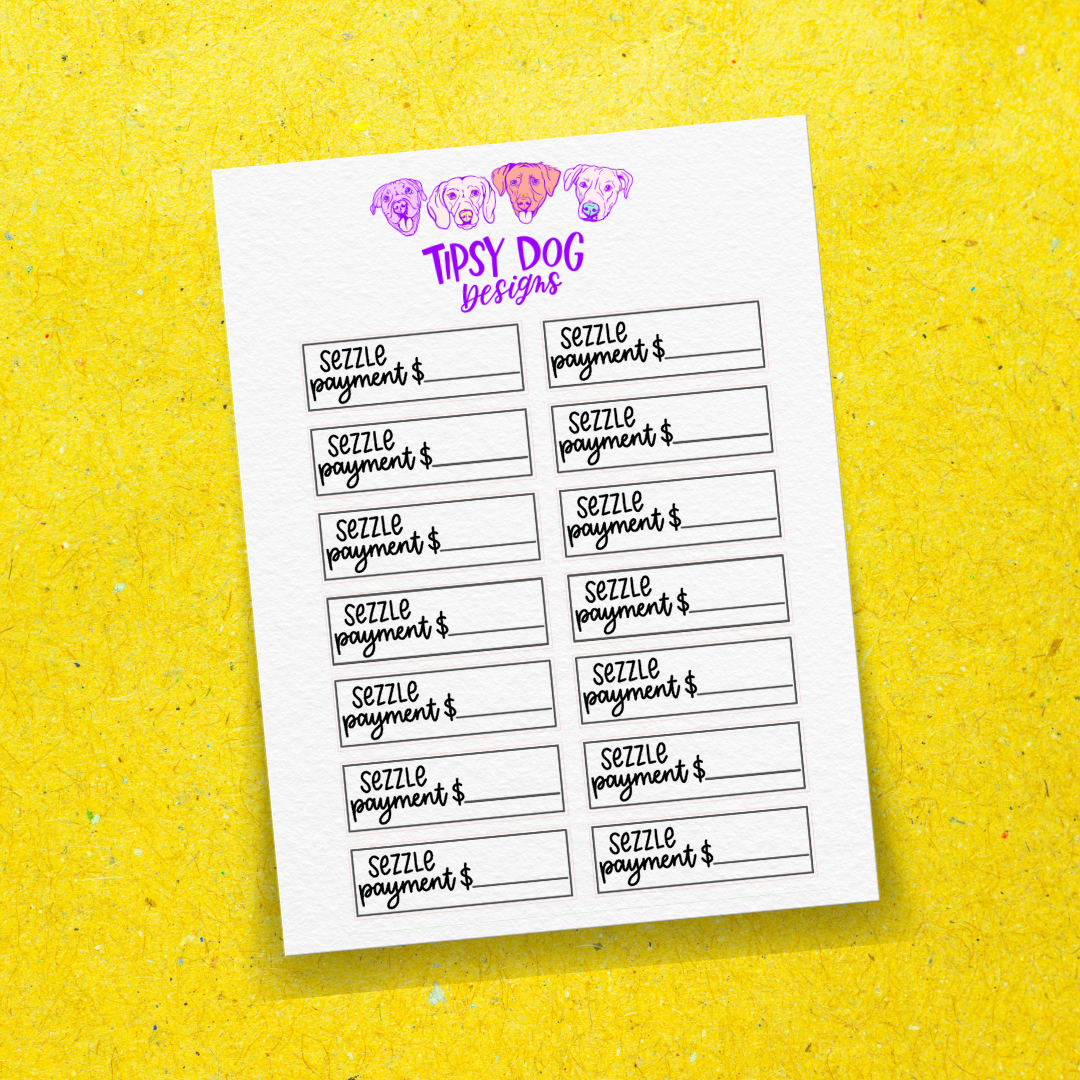 TIPSY DOG
Designs
SEZZLE
payment $
SEZZLE
payment $
SEZZLE
payment $
SEZZLE
payment $
SEZZLE
payment $
SEZZLE
payment $
SEZZLE
payment $
SEZZLE
payment $
SEZZLE
payment $
SEZZLE
payment $
SEZZLE
payment $
SEZZLE
payment $
SEZZLE
payment $
SEZZLE
payment $